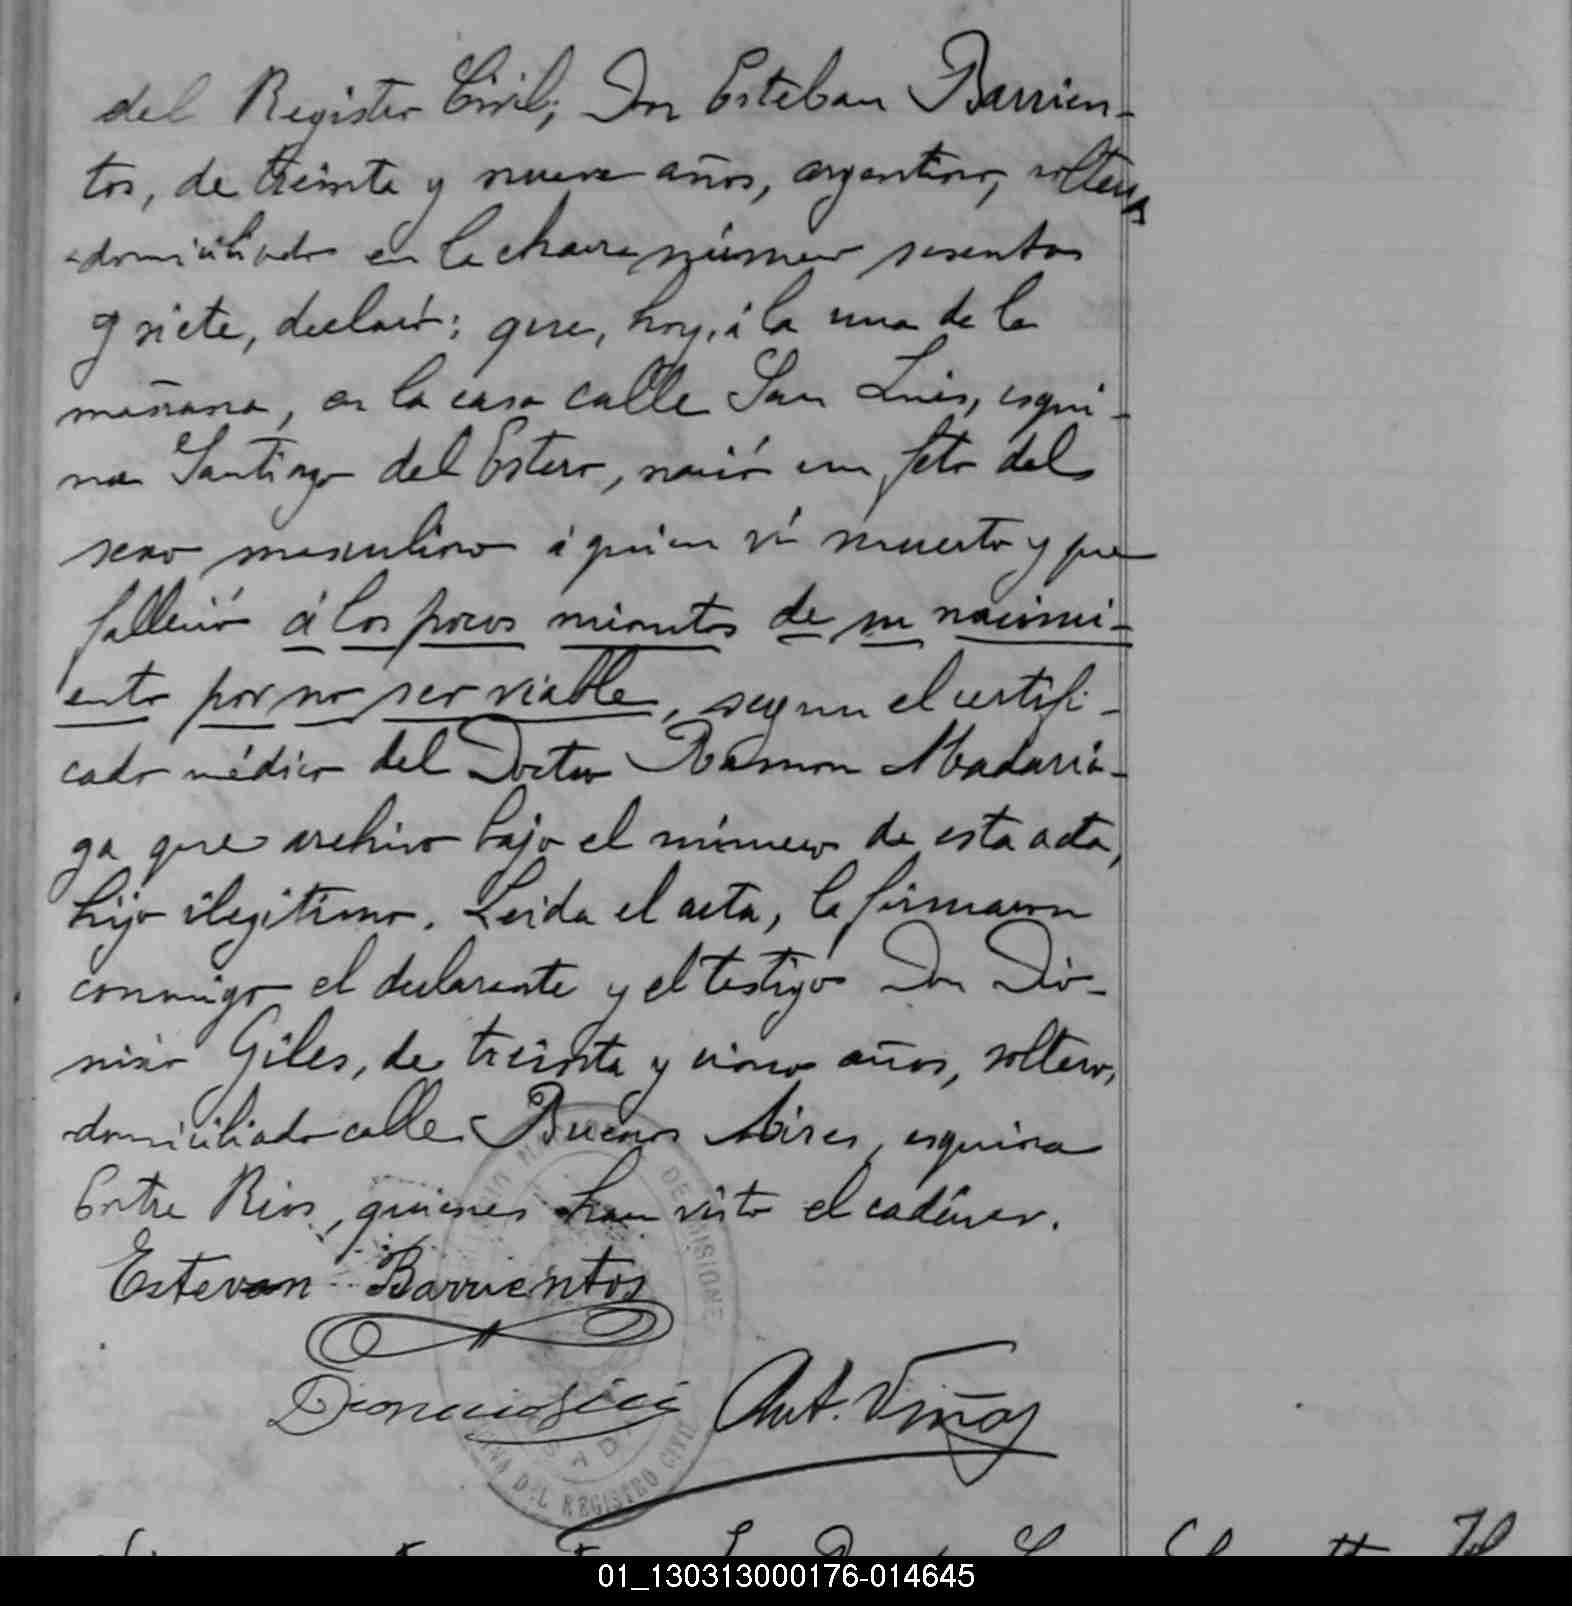 del Registro Civil, Don Esteban Barrien-
tos, de treinta y nueve años, argentino, soltero
domiciliado en la chacra número sesenta
y siete, declaró: que, hoy, á la una de la
mañana, en la casa calle San Luis, esqui-
na Santiago del Estero, nació un feto del
sexo masculino á quien ví muerto y que
falleció á los pocos minutos de su nacimi-
ento por no ser viable, segun el certifi-
cado médico del Doctor Ramon Madaria-
ga que archivo bajo el número de esta acta,
hijo ilegitimo. Leida el acta, la firmaron
conmigo el declarante y el testigo Don Dio-
nisio Giles, de treinta y cinco años, soltero,
domiciliado calle Buenos Aires, esquina
Entre Rios, quienes han visto el cadáver.
Estevan Barrientos
Ant. Viñas
DEL REGISTRO CIVIL
01_130313000176-014645